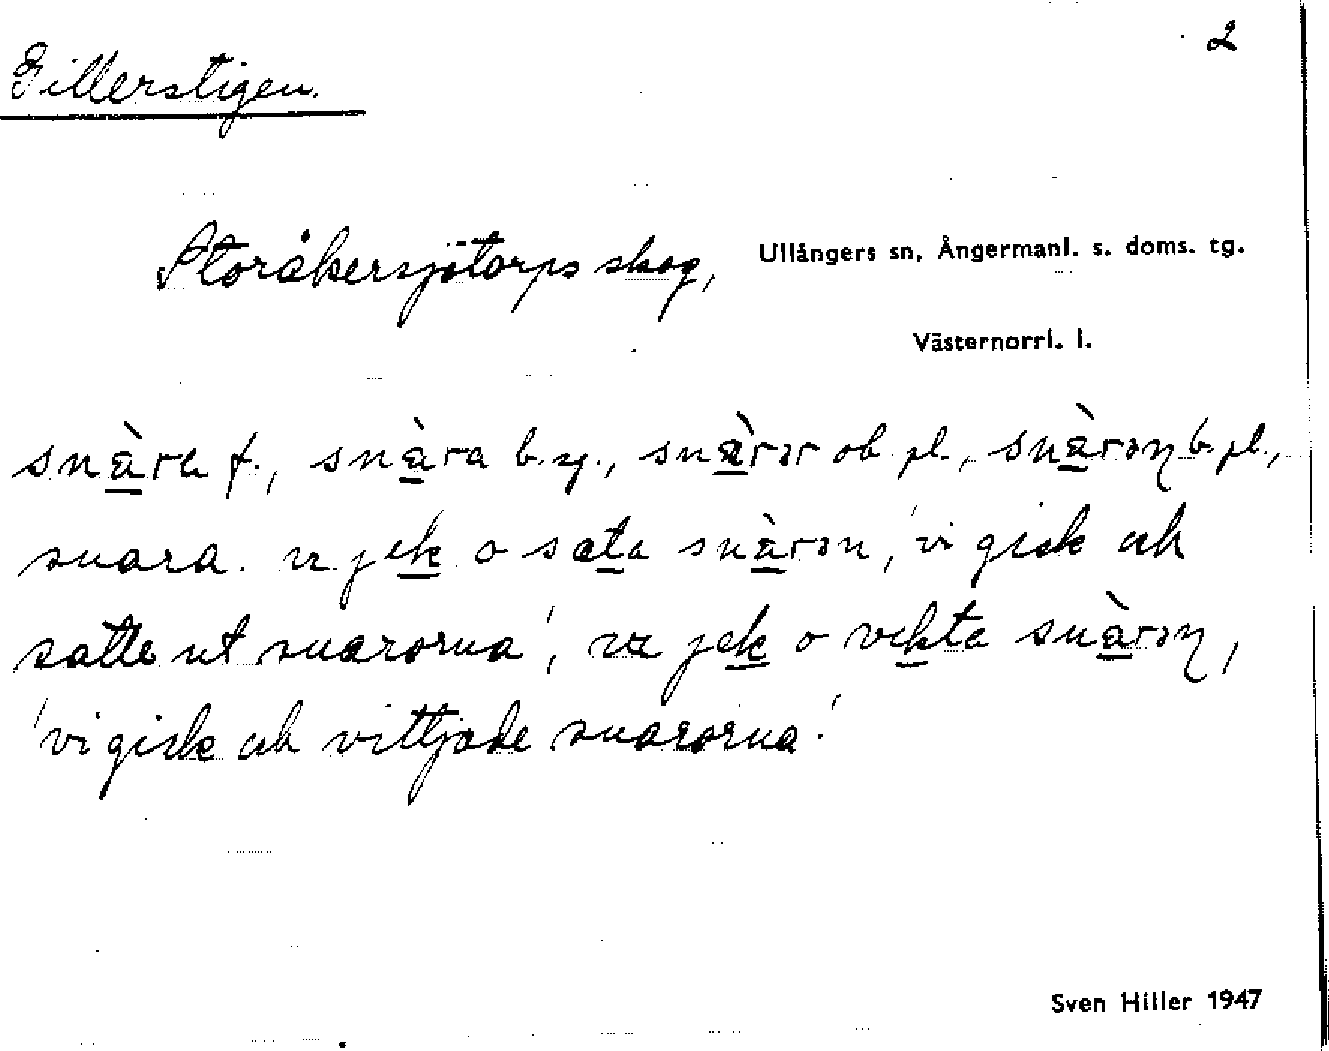 2
Gillerstigen.
Storåkersjötorps skog, Ullångers sn, Ångermanl. s. doms. tg.
Västernorrl. l.
snàra f., snàra b. sg., snàrər ob. pl., snàrəɳ b. pl.,
snara. vɪ jek o sɛta snàrən, 'vi gick och
satte ut snarorna', vɪ jek o vekta snàrəɳ,
'vi gick och vittjade snarorna.'
Sven Hiller 1947